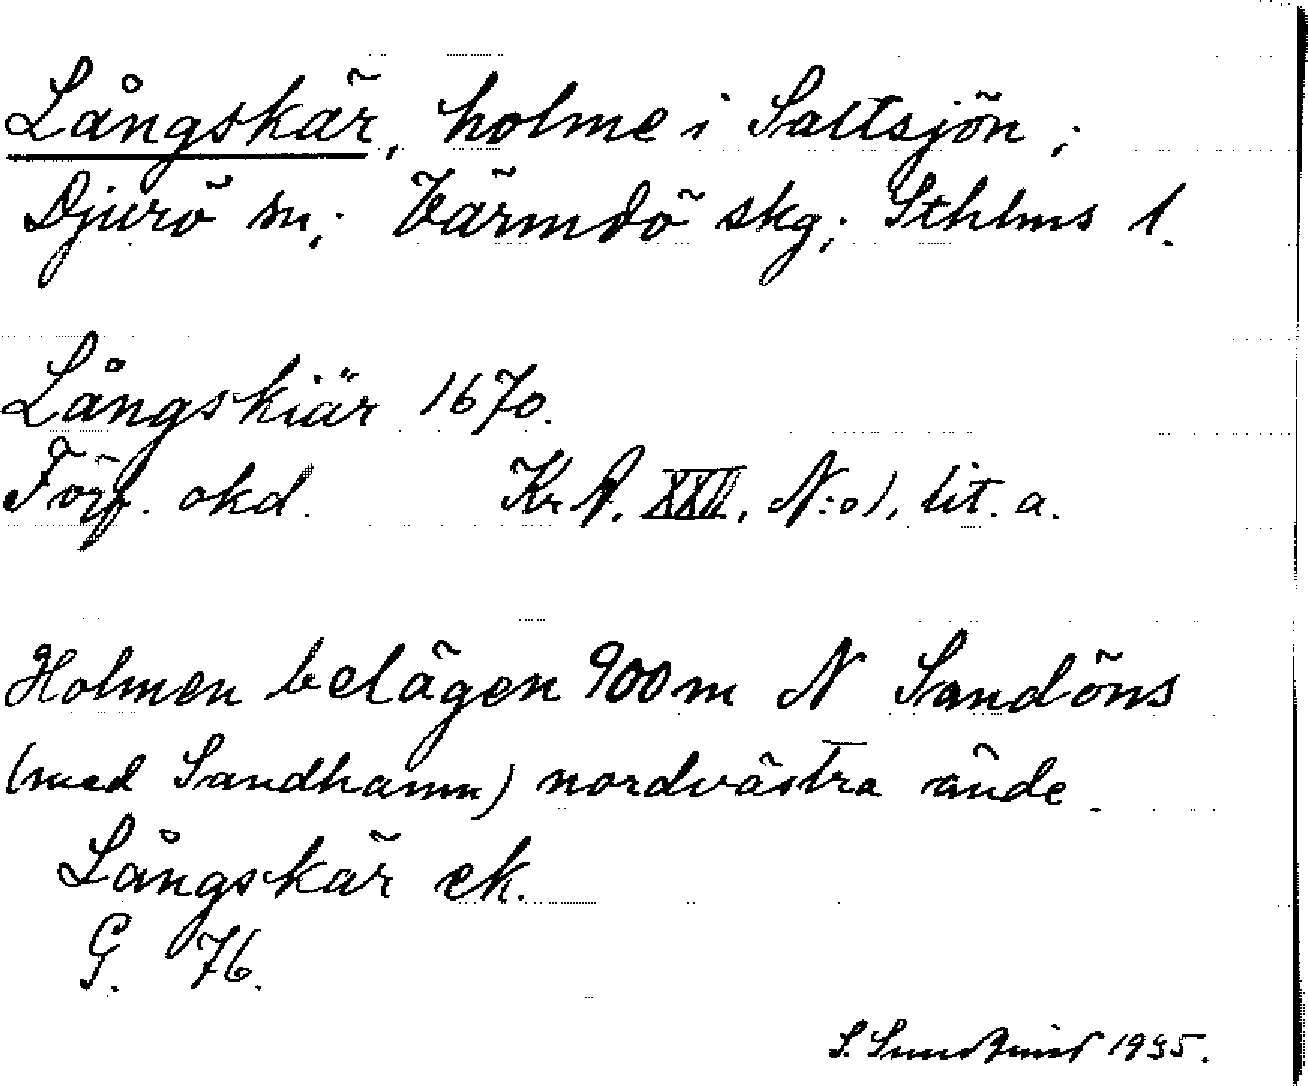 Långskär, holme i Saltsjön;
Djurö sn; Värmdö skg; Sthlms l.
Långskiär 1670.
Förf. okd. Kr A. XXII, N:o 1, lit. a.
Holmen belägen 900 m N Sandöns
(med Sandhamn) nordvästra ände.
Långskär ek.
G. 76.
S. 1935.